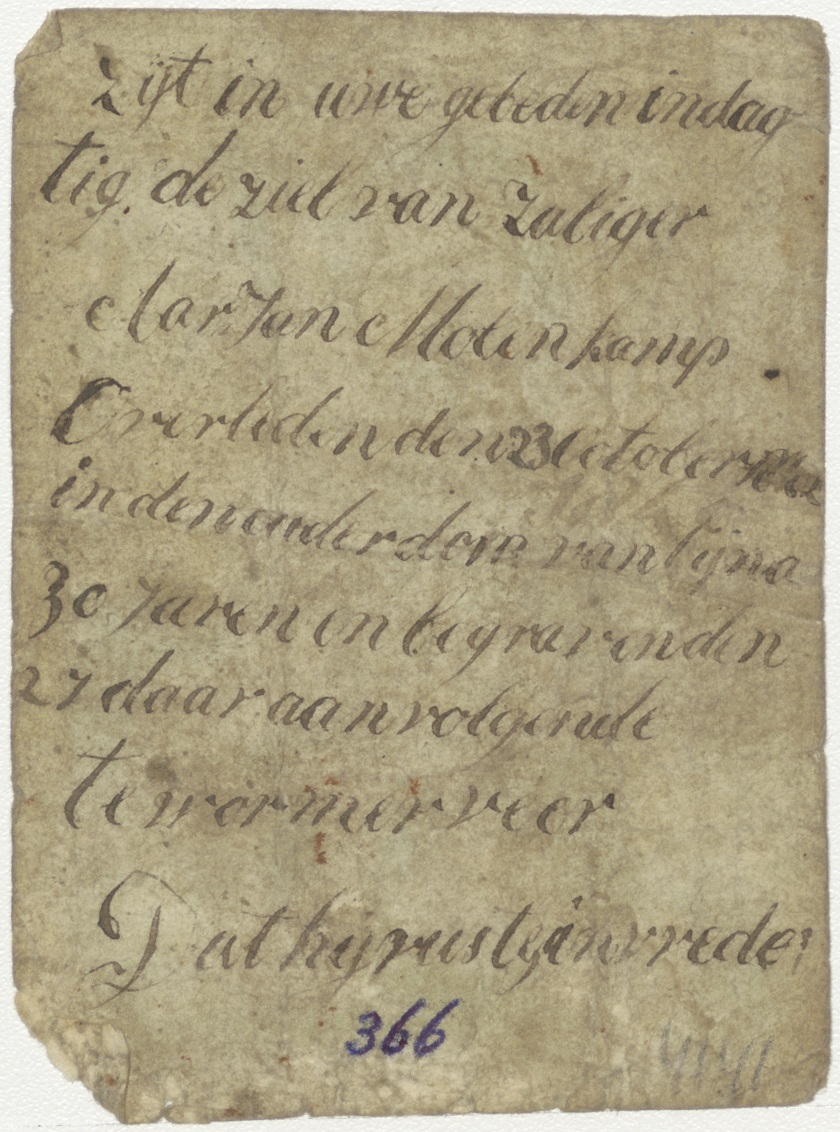 Zijt in uwe gebeden indag
tig. de ziel van Zaliger
Jan Molenkamp
Overleden den 23 October
in den ouderdom van bijna
30 Jaren en begraven den
27 daar aan volgende
te wormerveer
Dat hij ruste in vrede
366
4141